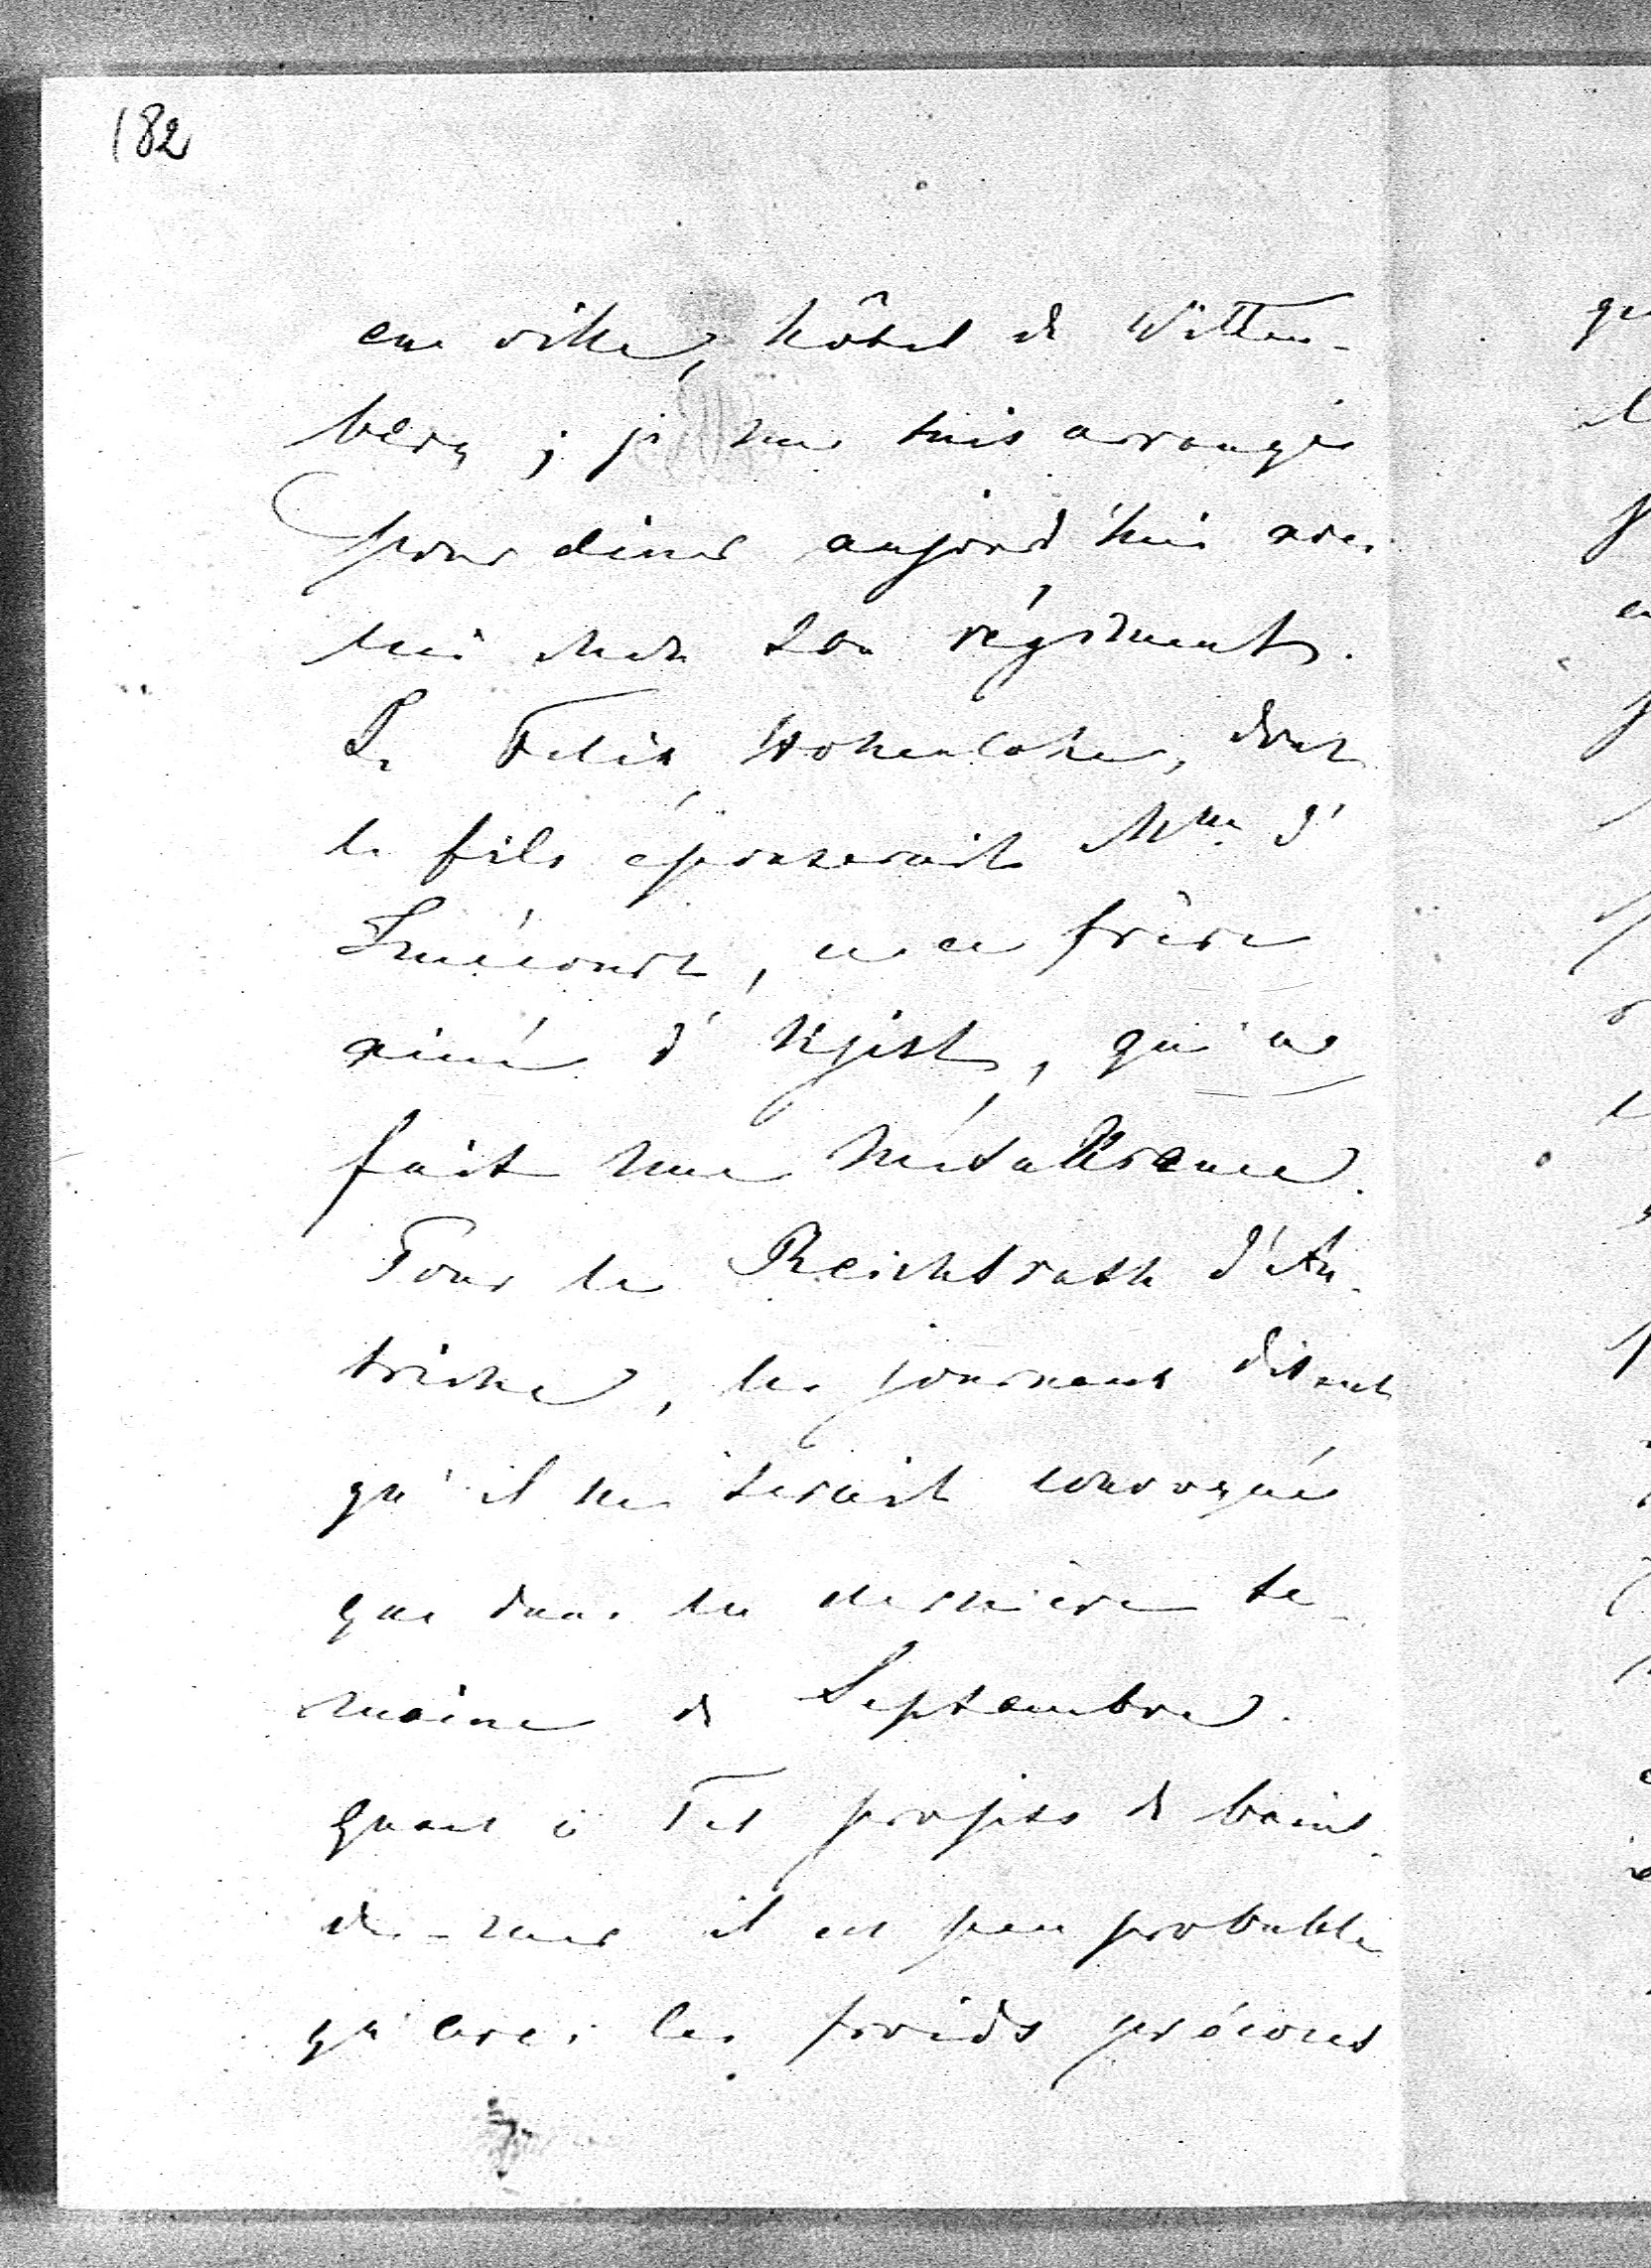 182
en ville, hôtel de Witten-
berg ; je me suis arrangé
pour diner aujourd'hui avec
lui chez son régiment.
Le Felix Hohenlohe, dont
le fils épouserait Mlle d'
Imécourt, a un frère
ainé d'Egiste, qui a
fait une mésalliance.
Pour le Reichsrath d'Au-
triche, les journaux disent
qu'il ne serait convoqué
que dans la dernière se-
maine de Septembre.
Quant à Tes projets de bains
de-mer il est peu probable
qu'avec les froids précoces